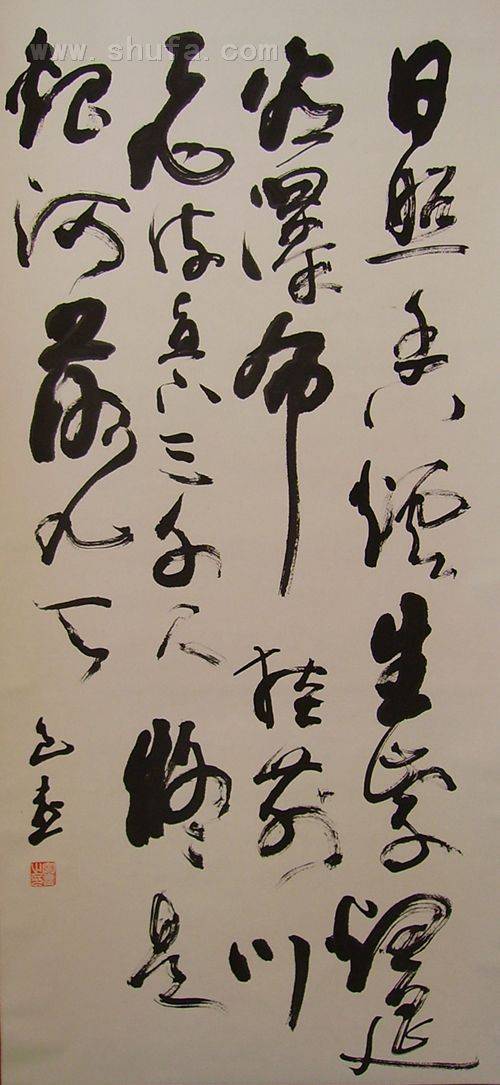 www.shufa.com
日照香爐生紫煙遥
看瀑布挂前川
飛流直下三千尺疑是
銀河落九天